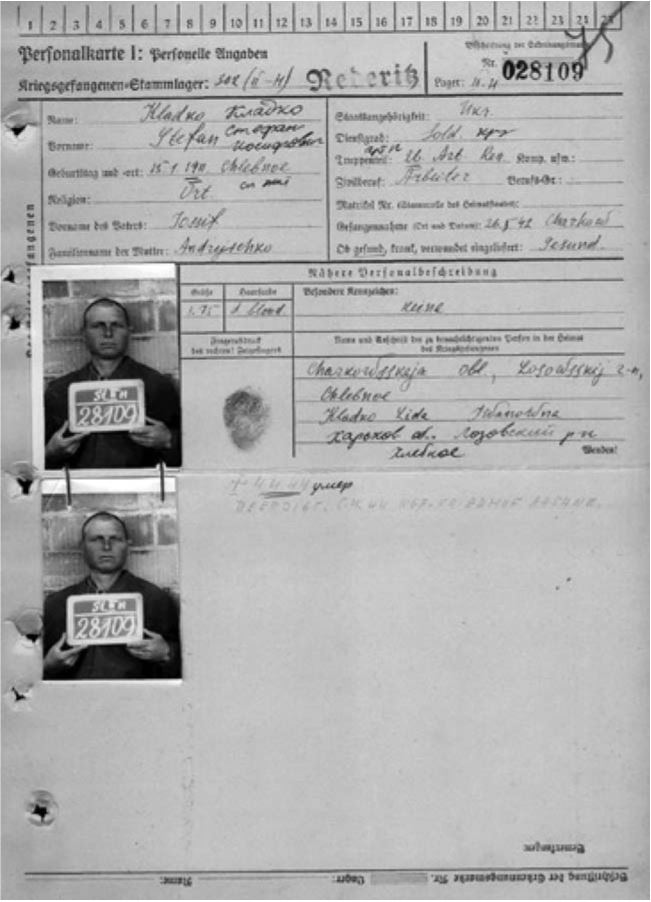 1 2 3 4 5 6 7 8 9 10 11 12 13 14 15 16 17 18 19 20 21 22 23
Personalkarte I: Personelle Angaben
Kriegsgefangenen-Stammlager: 302 (II-H) Rederitz
Beschriftung der Erkennungsmarke
Nr. 028109
Lager:
Name: Kladko Кладко
Vorname: Stefan Стефан
Иосифович
Geburtstag und -ort: 15.1.1911 Chlebnoe
Religion: Ort.
Vorname des Vaters: Iosif
Familienname der Mutter: Andryschko
Staatsangehörigkeit: Ukr.
Dienstgrad: Sold. кр
Truppenteil: Art. Reg. Komp. usw.:
Zivilberuf: Arbeiter Berufs-Gr.:
Matrikel Nr. (Stammrolle des Heimatstaates):
Gefangennahme (Ort und Datum): 26.5.42 Charkow
Ob gesund, krank, verwundet eingeliefert: Gesund.
Nähere Personalbeschreibung
Größe Haarfarbe Besondere Kennzeichen:
1.75 d. blond. keine
Fingerabdruck
des rechten! Zeigefingers
Name und Anschrift der zu benachrichtigenden Person in der Heimat
des Kriegsgefangenen
Charkowsskaja obl., Losowsskij r-n,
Chlebnoe
Kladko Lida Iwanowna
Харьков об. Лозовский р-н
Хлебное
Wenden!
28109
умер
28109
Bemerkungen:
Beschriftung der Erkennungsmarke Nr. Lager: Name: